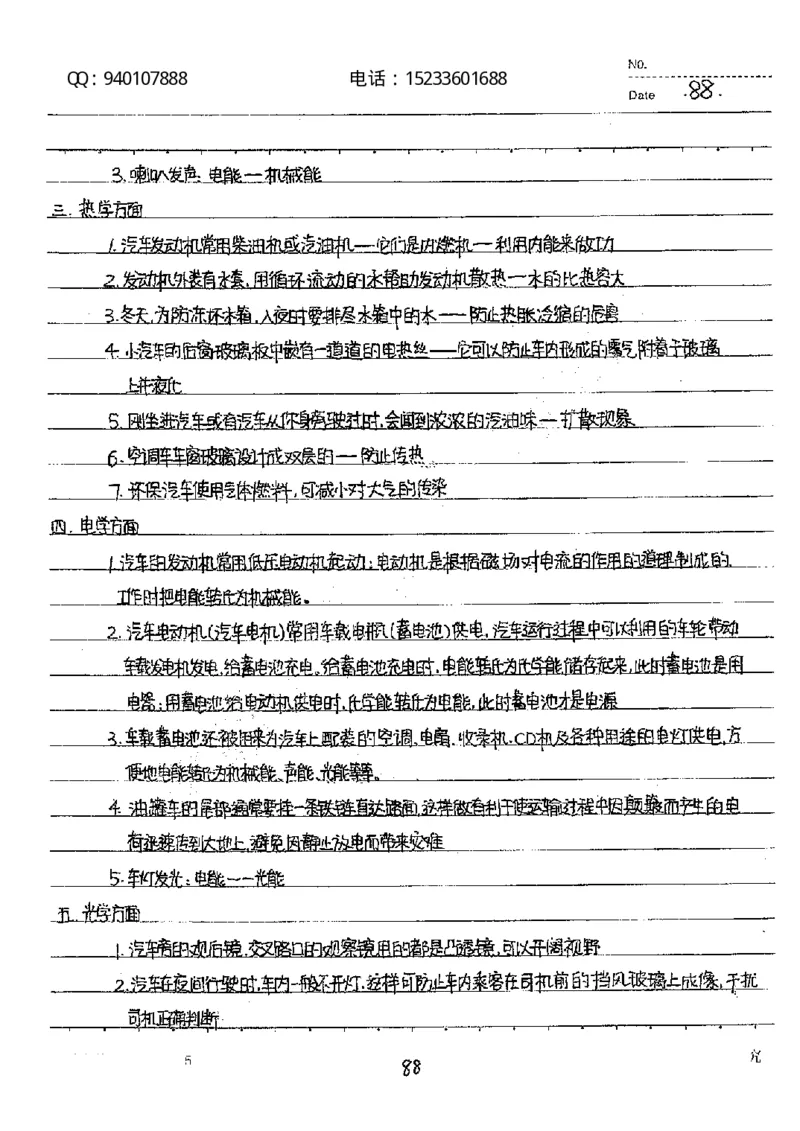 QQ：940107888 电话：15233601688 No.
Date ·88·
3.喇叭发声：电能——机械能
三.热学方面
1.汽车发动机常用柴油机或汽油机——它们是内燃机——利用内能来做功
2.发动机外装有水套,用循环流动的水帮助发动机散热——水的比热容大
3.冬天,为防冻坏水箱,入夜时要排尽水箱中的水——防止热胀冷缩的危害
4.小汽车的后窗玻璃板中嵌有一道道的电热丝——它可以防止车内形成的雾气附着于玻璃
上并液化
5.刚坐进汽车或有汽车从你身旁驶过时,会闻到浓浓的汽油味——扩散现象
6.空调车车窗玻璃设计成双层的——防止传热
7.环保汽车使用气体燃料,可减小对大气的传染
四.电学方面
1.汽车的发动机常用低压电动机起动;电动机是根据磁场对电流的作用的道理制成的,
工作时把电能转化为机械能。
2.汽车电动机(汽车电机)常用车载电瓶(蓄电池)供电,汽车运行过程中可以利用的车轮带动
车载发电机发电,给蓄电池充电。给蓄电池充电时,电能转化为化学能储存起来,此时蓄电池是用
电器;用蓄电池给电动机供电时,化学能转化为电能,此时蓄电池才是电源
3.车载蓄电池还被用来为汽车上配装的空调.电扇.收录机.CD机及各种用途的电灯供电,方
便地电能转化为机械能、声能、光能等等。
4.油罐车的尾部通常要挂一条铁链直达路面,这样做有利于使运输过程中因颠簸而产生的电
荷迅速传到大地上,避免因静止放电而带来灾难
5.车灯发光:电能——光能
五.光学方面
1.汽车旁的观后镜,交叉路口的观察镜用的都是凸透镜,可以开阔视野
2.汽车在夜间行驶时,车内一般不开灯,这样可防止车内乘客在司机前的挡风玻璃上成像,干扰
司机正确判断
5 88 究